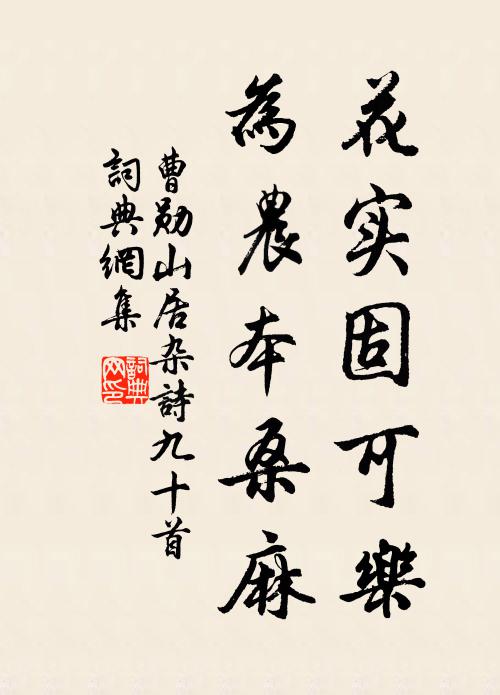 花实固可樂
為農本桑麻
曹勋山居杂詩九十首
詞典網集
詞典網印